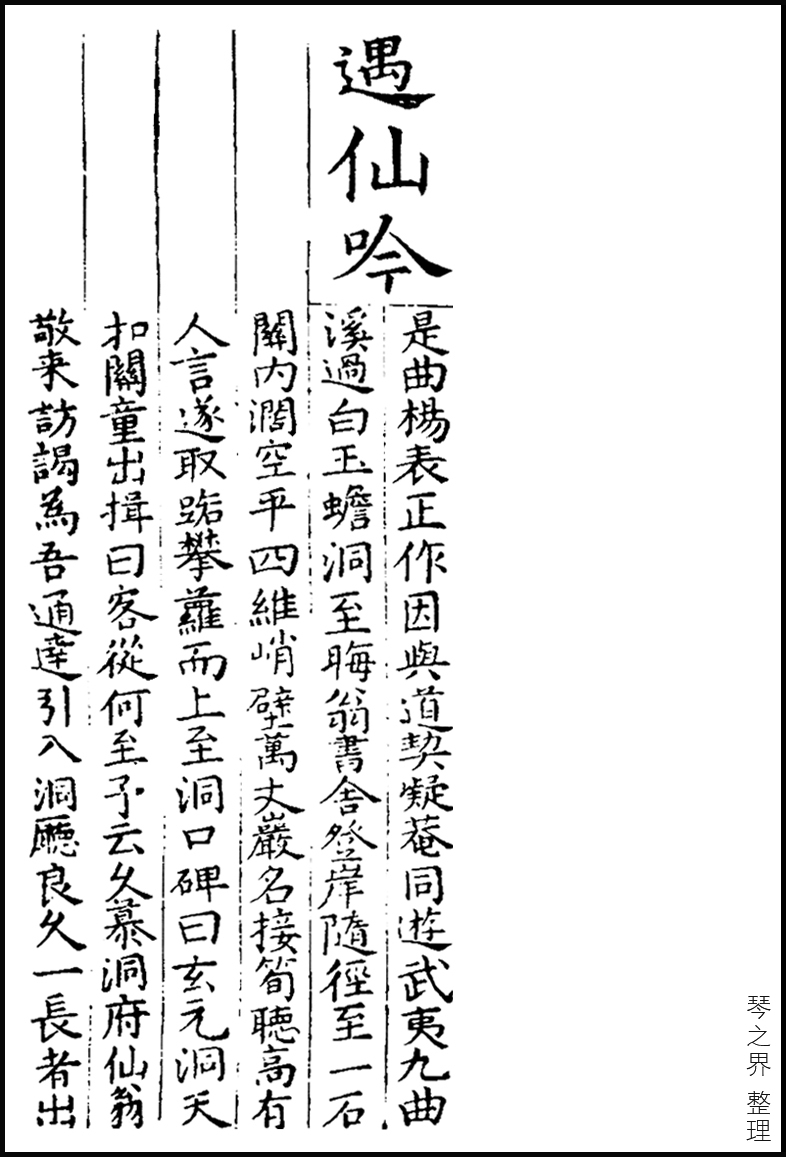 遇仙吟
是曲楊表正作因與道契凝菴同遊武夷九曲
溪過白玉蟾洞至晦翁書舍登岸隨徑至一石
關内濶空平四維峭壁萬丈巖名接筍聽高有
人言遂取跖攀蘿而上至洞口碑曰玄元洞天
扣關童出揖曰客從何至予云久慕洞府仙翁
敬来訪謁為吾通達引入洞廳良久一長者出
琴之界 整理